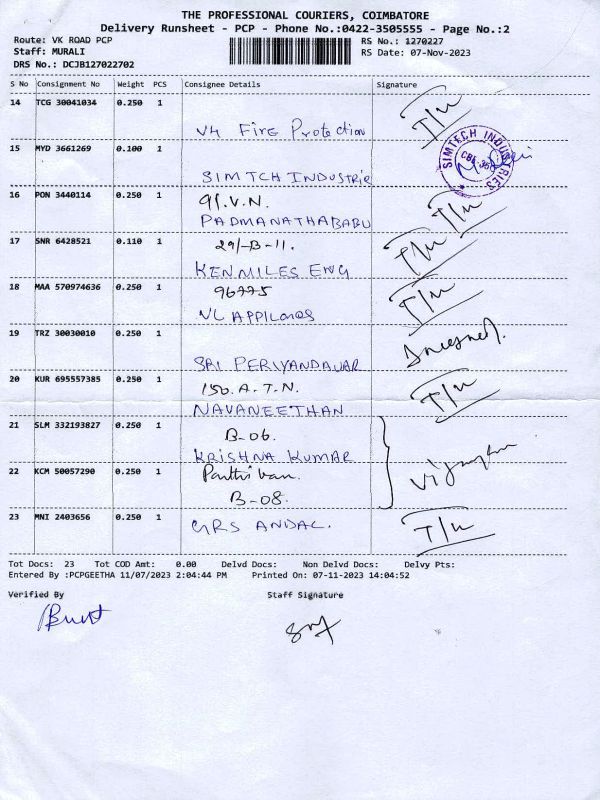 THE PROFESSIONAL COURIERS, COIMBATORE
Delivery Runsheet - PCP - Phone No.:0422-3505555 - Page No.:2
Route: VK ROAD PCP
RS No.: 1270227
Staff: MURALI
RS Date: 07-Nov-2023
DRS No.: DCJB127022702
S No Consignment No Weight PCS Consignee Details Signature
14 TCG 30041034 0.250 1
V4 Fire Protection
T/w
15 MYD 3661269 0.100 1
SIMTCH INDUSTRIE
SIMTECH INDUSTRIES
16 PON 3440114 0.250 1
91.V.N.
PADMANATHABABU
T/w
17 SNR 6428521 0.110 1
29/-B-11.
KENMILES ENG
T/w
18 MAA 570974636 0.250 1
96775
VL APPILANCES
T/w
19 TRZ 30030010 0.250 1
SRI PERIYANDAVAR
20 KUR 695557385 0.250 1
150.A.T.N.
NAVANEETHAN
T/w
21 SLM 332193827 0.250 1
B-06.
KRISHNA KUMAR
22 KCM 50057290 0.250 1
Parthiban.
B-08.
23 MNI 2403656 0.250 1
GRS ANDAL.
T/w
Tot Docs: 23 Tot COD Amt: 0.00 Delvd Docs: Non Delvd Docs: Delvy Pts:
Entered By :PCPGEETHA 11/07/2023 2:04:44 PM Printed On: 07-11-2023 14:04:52
Verified By Staff Signature